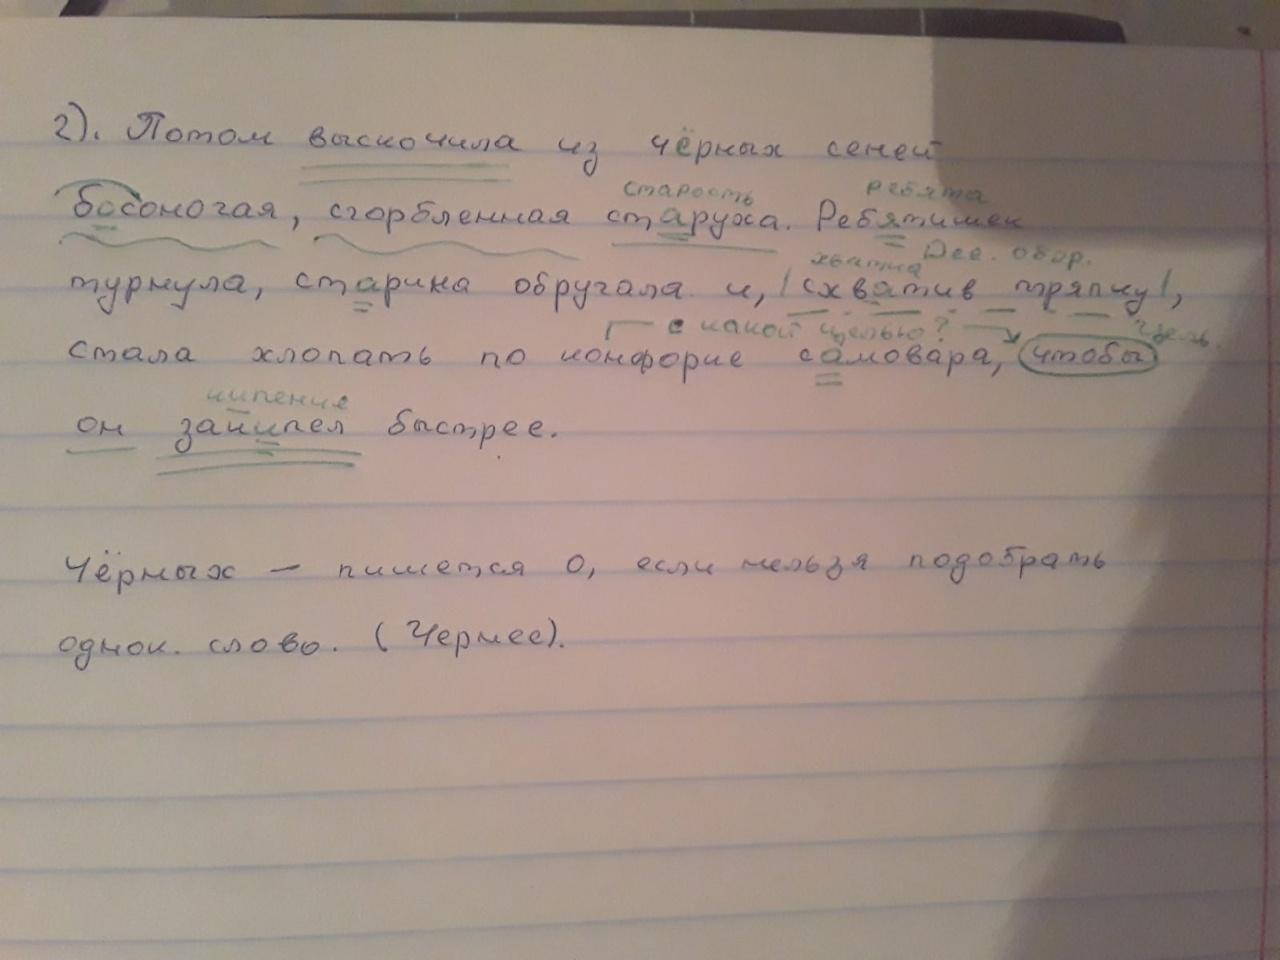 2). Потом выскочила из чёрных сеней
старость ребята
босоногая, сгорбленная старуха. Ребятишек
хватка Дее. обор.
турнула, старика обругала и, |схватив тряпку|,
с какой целью? цель.
стала хлопать по конфорке самовара, чтобы
кипение
он закипел быстрее.
Чёрных – пишется О, если нельзя подобрать
однок. слово. (Чернее).